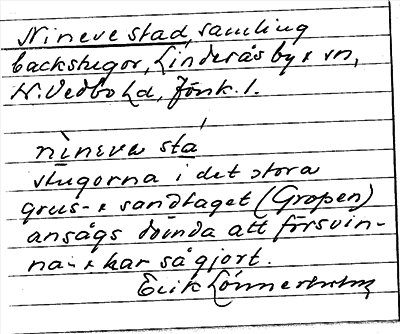 Nineve stad, samling
backstugor, Linderås by & sn,
N. Vedbo hd, Jönk. l.
nìnɛva sta
stugorna i det stora
grus- & sandtaget (Gropen)
ansågs dömda att försvin-
na - & har så gjort.
Erik Lönnerholm